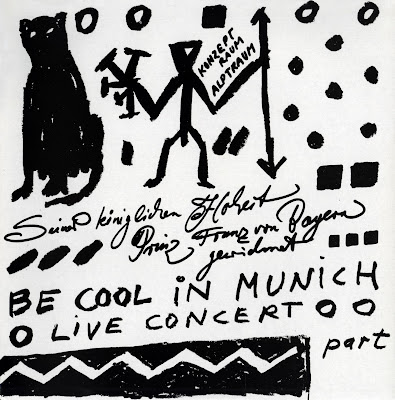 KONZEPT
RAUM
ALPTRAUM
Seiner königlichen Hoheit
Prinz Franz von Bayern
gewidmet
BE COOL iN MUNiCH
LiVE CONCERT
part